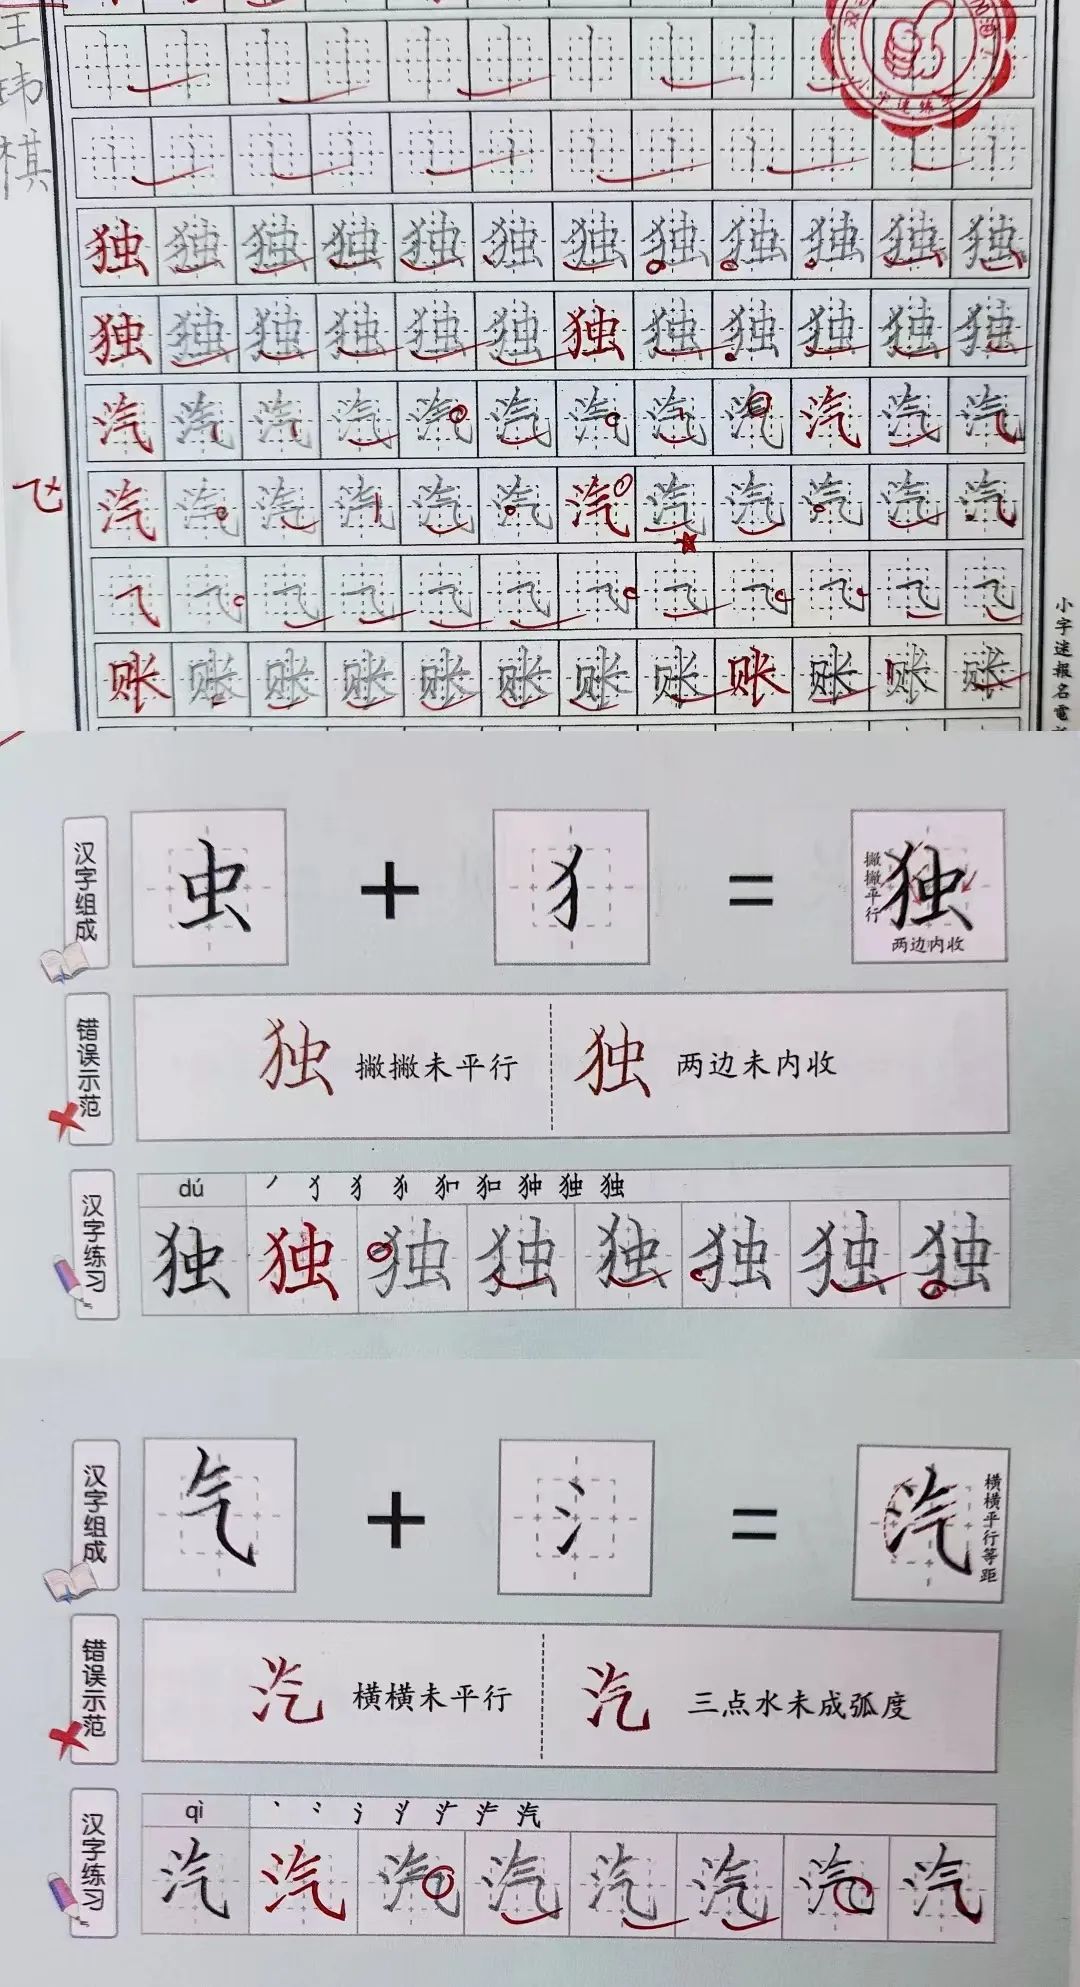 王玮棋
独独独独独独独独独独独独
独独独独独独独独独独独独
汽汽汽汽汽汽汽汽汽汽汽汽
汽汽汽汽汽汽汽汽汽汽汽汽
账账账账账账账账账账账账
小字迷報名電
汉字组成
虫 + 犭 = 独
撇撇平行
两边内收
错误示范
独 撇撇未平行
独 两边未内收
汉字练习
dú
独独独独独独独独
汉字组成
气 + 氵 = 汽
横横平行等距
错误示范
汽 横横未平行
汽 三点水未成弧度
汉字练习
qì
汽汽汽汽汽汽汽汽